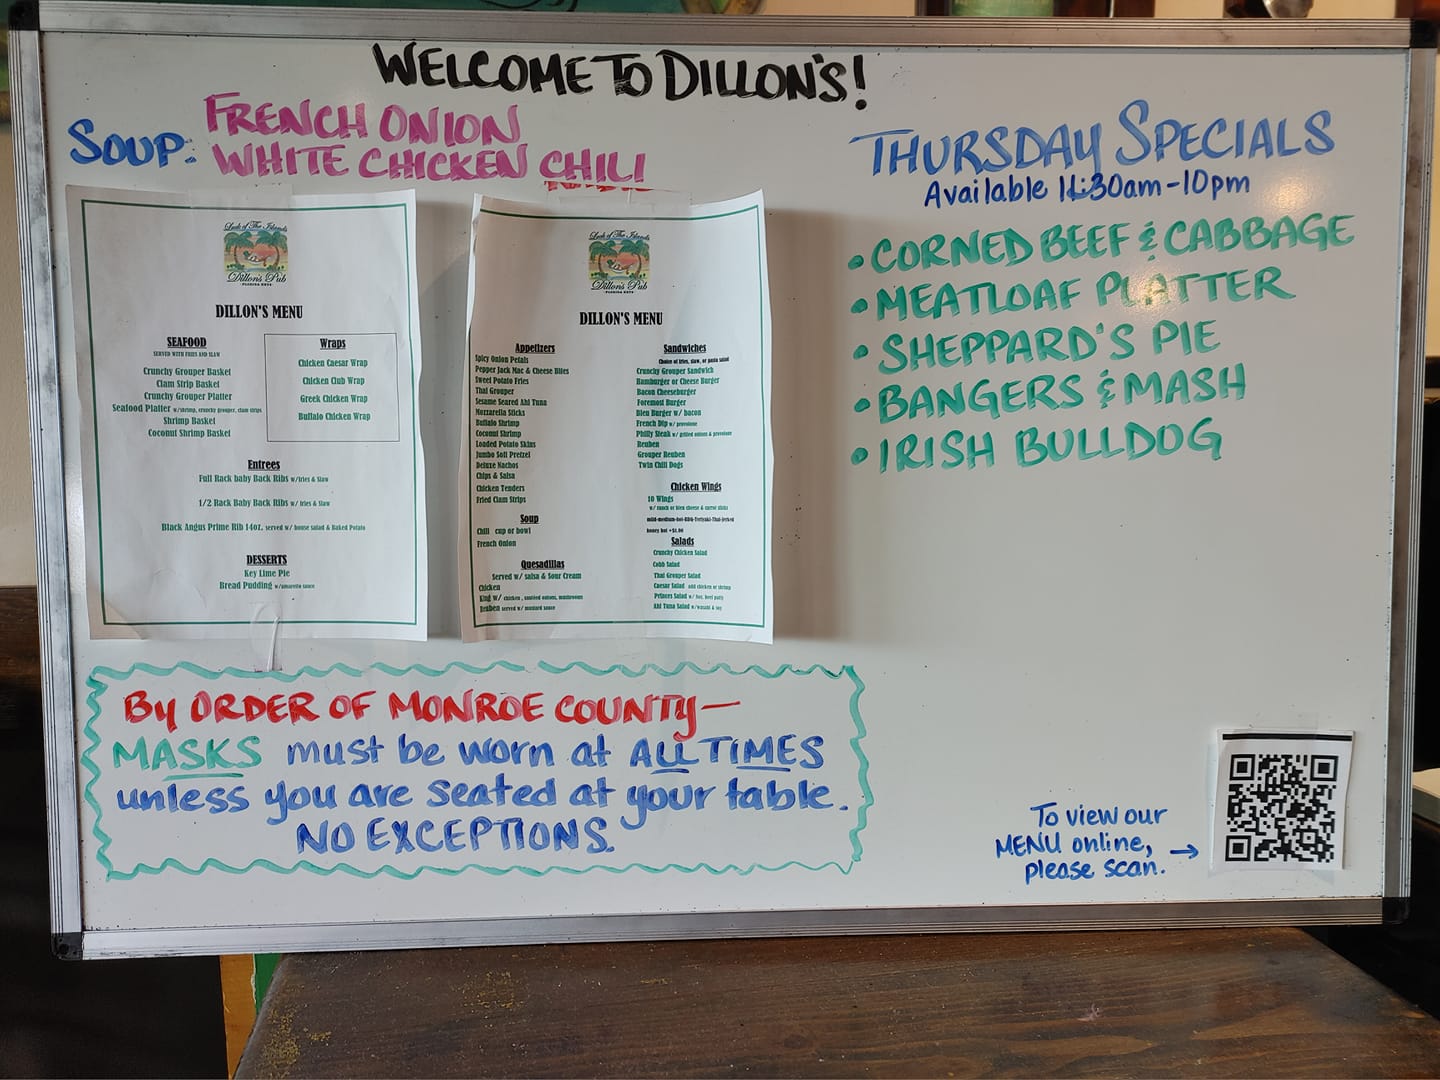 WELCOME TO DILLON'S!
SOUP: FRENCH ONION
WHITE CHICKEN CHILI
Luck of The Islands
Dillon's Pub
FLORIDA KEYS
DILLON'S MENU
SEAFOOD
SERVED WITH FRIES AND SLAW
Crunchy Grouper Basket
Clam Strip Basket
Crunchy Grouper Platter
Seafood Platter w/shrimp, crunchy grouper, clam strips
Shrimp Basket
Coconut Shrimp Basket
Wraps
Chicken Caesar Wrap
Chicken Club Wrap
Greek Chicken Wrap
Buffalo Chicken Wrap
Entrees
Full Rack baby Back Ribs w/fries & Slaw
1/2 Rack Baby Back Ribs w/ fries & Slaw
Black Angus Prime Rib 14oz. served w/ house salad & Baked Potato
DESSERTS
Key Lime Pie
Bread Pudding w/amaretto sauce
Luck of The Islands
Dillon's Pub
FLORIDA KEYS
DILLON'S MENU
Appetizers
Spicy Onion Petals
Pepper Jack Mac & Cheese Bites
Sweet Potato Fries
Thai Grouper
Sesame Seared Ahi Tuna
Mozzarella Sticks
Buffalo Shrimp
Coconut Shrimp
Loaded Potato Skins
Jumbo Soft Pretzel
Deluxe Nachos
Chips & Salsa
Chicken Tenders
Fried Clam Strips
Soup
Chili cup or bowl
French Onion
Quesadillas
Served w/ salsa & Sour Cream
Chicken
King w/ chicken, sautéed onions, mushrooms
Reuben served w/ mustard sauce
Sandwiches
Choice of fries, slaw, or pasta salad
Crunchy Grouper Sandwich
Hamburger or Cheese Burger
Bacon Cheeseburger
Foremost Burger
Bleu Burger w/ bacon
French Dip w/ provolone
Philly Steak w/ grilled onions & provolone
Reuben
Grouper Reuben
Twin Chili Dogs
Chicken Wings
10 Wings
w/ ranch or bleu cheese & carrot sticks
mild-medium-hot-BBQ-Teriyaki-Thai-Jerked
honey hot +$1.00
Salads
Crunchy Chicken Salad
Cobb Salad
Thai Grouper Salad
Caesar Salad add chicken or shrimp
Princes Salad w/ 8oz. beef patty
Ahi Tuna Salad w/wasabi & soy
THURSDAY SPECIALS
Available 11:30am-10pm
• CORNED BEEF & CABBAGE
• MEATLOAF PLATTER
• SHEPPARD'S PIE
• BANGERS & MASH
• IRISH BULLDOG
By ORDER OF MONROE COUNTY—
MASKS must be worn at ALL TIMES
unless you are seated at your table.
NO EXCEPTIONS.
To view our
MENU online, →
please scan.